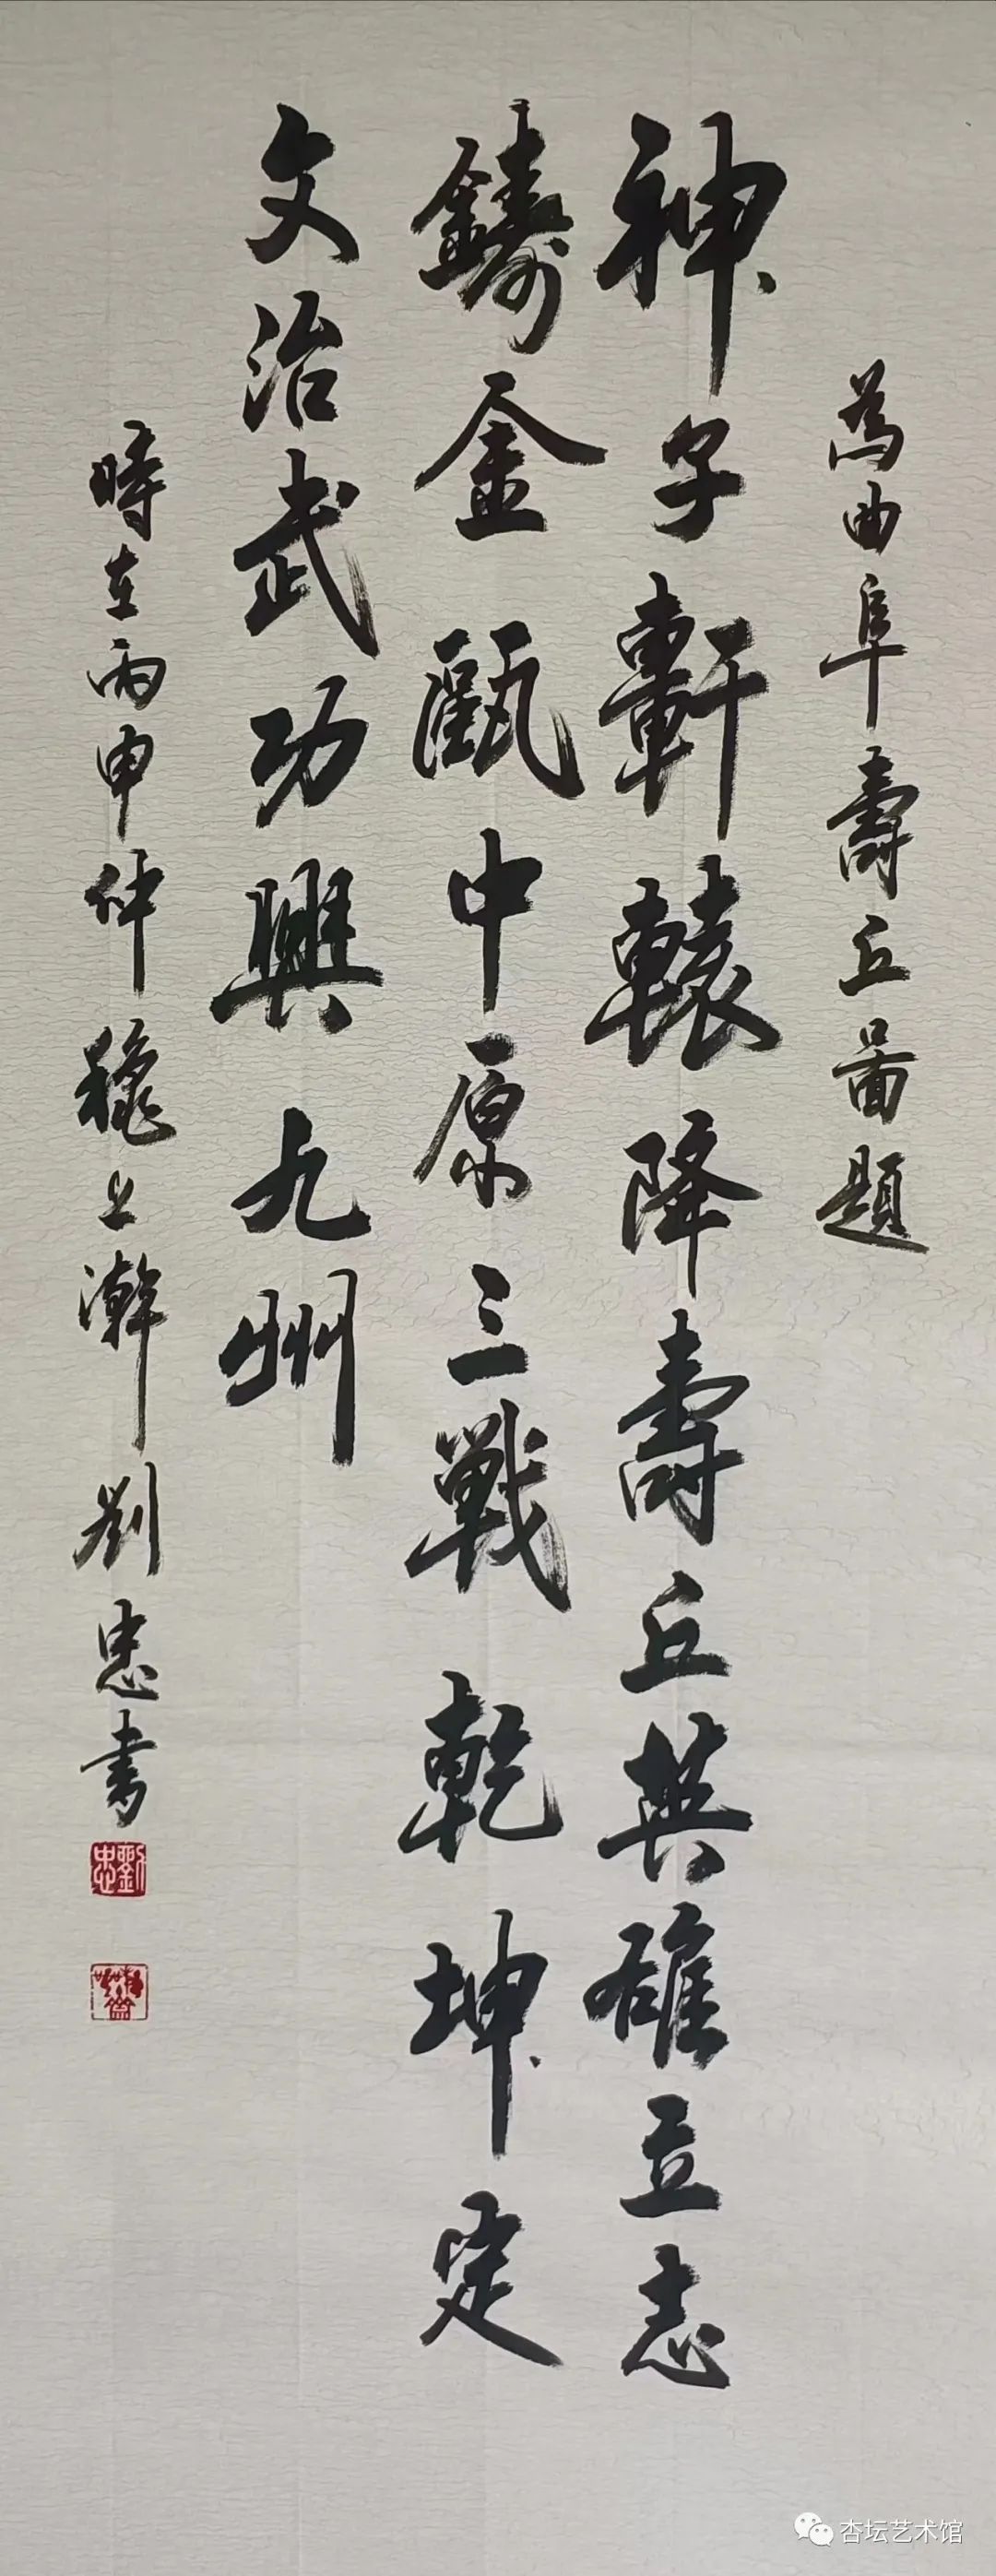 為曲阜壽丘圖題
神子軒轅降壽丘英雄立志
鑄金甌中原三戰乾坤定
文治武功興九州
時在丙申仲穐之澣劉忠書
劉忠
杏坛艺术馆